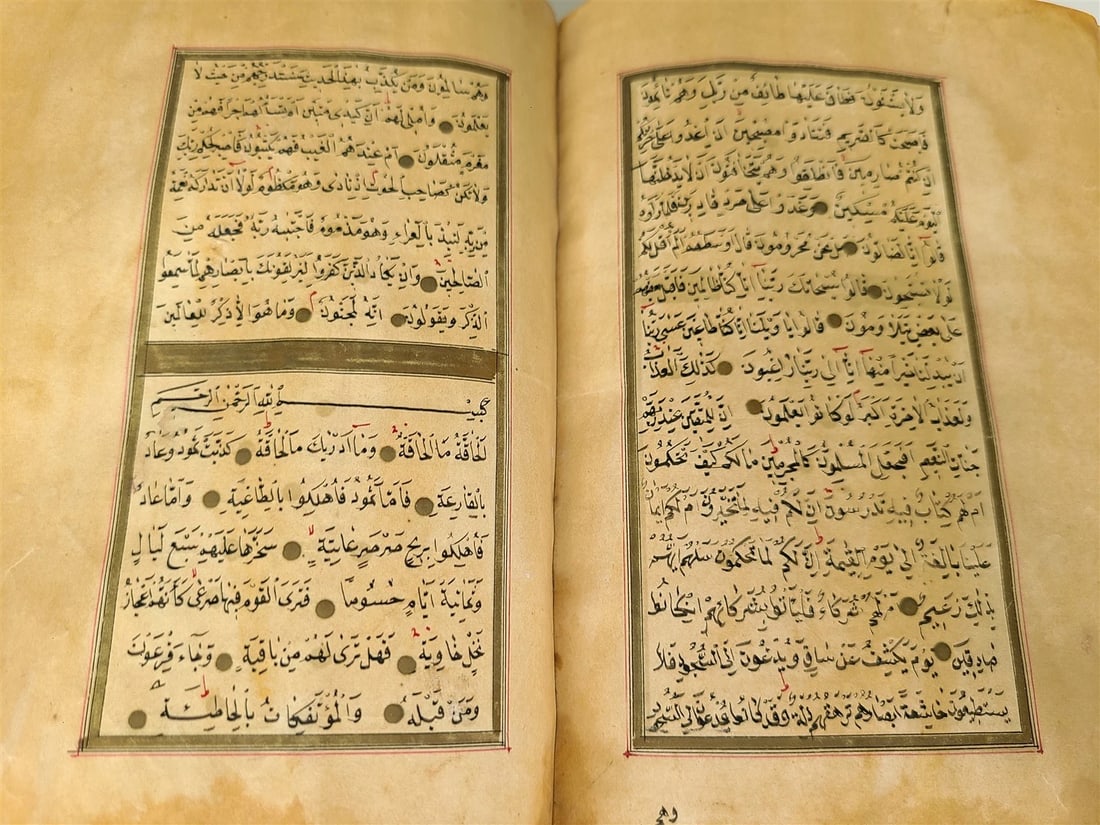 وَلَا يَسْتَثْنُونَ فَطَافَ عَلَيْهَا طَائِفٌ مِنْ رَبِّكَ وَهُمْ نَائِمُونَ
فَاَصْبَحَتْ كَالصَّرِيمِ فَتَنَادَوْا مُصْبِحِينَ اَنِ اغْدُوا عَلٰى حَرْثِكُمْ
اِنْ كُنْتُمْ صَارِمِينَ فَانْطَلَقُوا وَهُمْ يَتَخَافَتُونَ اَنْ لَا يَدْخُلَنَّهَا
الْيَوْمَ عَلَيْكُمْ مِسْكِينٌ وَغَدَوْا عَلٰى حَرْدٍ قَادِرِينَ فَلَمَّا رَاَوْهَا
قَالُوا اِنَّا لَضَالُّونَ بَلْ نَحْنُ مَحْرُومُونَ قَالَ اَوْسَطُهُمْ اَلَمْ اَقُلْ لَكُمْ
لَوْلَا تُسَبِّحُونَ قَالُوا سُبْحَانَ رَبِّنَا اِنَّا كُنَّا ظَالِمِينَ فَاَقْبَلَ بَعْضُهُمْ
عَلٰى بَعْضٍ يَتَلَاوَمُونَ قَالُوا يَا وَيْلَنَا اِنَّا كُنَّا طَاغِينَ عَسٰى رَبُّنَا
اَنْ يُبْدِلَنَا خَيْرًا مِنْهَا اِنَّا اِلٰى رَبِّنَا رَاغِبُونَ كَذٰلِكَ الْعَذَابُ
وَلَعَذَابُ الْاٰخِرَةِ اَكْبَرُ لَوْ كَانُوا يَعْلَمُونَ اِنَّ لِلْمُتَّقِينَ عِنْدَ رَبِّهِمْ
جَنَّاتِ النَّعِيمِ اَفَنَجْعَلُ الْمُسْلِمِينَ كَالْمُجْرِمِينَ مَا لَكُمْ كَيْفَ تَحْكُمُونَ
اَمْ لَكُمْ كِتَابٌ فِيهِ تَدْرُسُونَ اِنَّ لَكُمْ فِيهِ لَمَا تَخَيَّرُونَ اَمْ لَكُمْ اَيْمَانٌ
عَلَيْنَا بَالِغَةٌ اِلٰى يَوْمِ الْقِيٰمَةِ اِنَّ لَكُمْ لَمَا تَحْكُمُونَ سَلْهُمْ اَيُّهُمْ
بِذٰلِكَ زَعِيمٌ اَمْ لَهُمْ شُرَكَاءُ فَلْيَاْتُوا بِشُرَكَائِهِمْ اِنْ كَانُوا
صَادِقِينَ يَوْمَ يُكْشَفُ عَنْ سَاقٍ وَيُدْعَوْنَ اِلَى السُّجُودِ فَلَا
يَسْتَطِيعُونَ خَاشِعَةً اَبْصَارُهُمْ تَرْهَقُهُمْ ذِلَّةٌ وَقَدْ كَانُوا يُدْعَوْنَ اِلَى السُّجُودِ
وهم
وَهُمْ سَالِمُونَ وَمَنْ يُكَذِّبُ بِهٰذَا الْحَدِيثِ سَنَسْتَدْرِجُهُمْ مِنْ حَيْثُ لَا
يَعْلَمُونَ وَاُمْلِي لَهُمْ اِنَّ كَيْدِي مَتِينٌ اَمْ تَسْئَلُهُمْ اَجْرًا فَهُمْ مِنْ
مَغْرَمٍ مُثْقَلُونَ اَمْ عِنْدَهُمُ الْغَيْبُ فَهُمْ يَكْتُبُونَ فَاصْبِرْ لِحُكْمِ رَبِّكَ
وَلَا تَكُنْ كَصَاحِبِ الْحُوتِ اِذْ نَادٰى وَهُوَ مَكْظُومٌ لَوْلَا اَنْ تَدَارَكَهُ نِعْمَةٌ
مِنْ رَبِّهِ لَنُبِذَ بِالْعَرَاءِ وَهُوَ مَذْمُومٌ فَاجْتَبٰيهُ رَبُّهُ فَجَعَلَهُ مِنَ
الصَّالِحِينَ وَاِنْ يَكَادُ الَّذِينَ كَفَرُوا لَيُزْلِقُونَكَ بِاَبْصَارِهِمْ لَمَّا سَمِعُوا
الذِّكْرَ وَيَقُولُونَ اِنَّهُ لَمَجْنُونٌ وَمَا هُوَ اِلَّا ذِكْرٌ لِلْعَالَمِينَ
بِسْمِ اللّٰهِ الرَّحْمٰنِ الرَّحِيمِ
اَلْحَاقَّةُ مَا الْحَاقَّةُ وَمَا اَدْرٰيكَ مَا الْحَاقَّةُ كَذَّبَتْ ثَمُودُ وَعَادٌ
بِالْقَارِعَةِ فَاَمَّا ثَمُودُ فَاُهْلِكُوا بِالطَّاغِيَةِ وَاَمَّا عَادٌ
فَاُهْلِكُوا بِرِيحٍ صَرْصَرٍ عَاتِيَةٍ سَخَّرَهَا عَلَيْهِمْ سَبْعَ لَيَالٍ
وَثَمَانِيَةَ اَيَّامٍ حُسُومًا فَتَرَى الْقَوْمَ فِيهَا صَرْعٰى كَاَنَّهُمْ اَعْجَازُ
نَخْلٍ خَاوِيَةٍ فَهَلْ تَرٰى لَهُمْ مِنْ بَاقِيَةٍ وَجَاءَ فِرْعَوْنُ
وَمَنْ قَبْلَهُ وَالْمُؤْتَفِكَاتُ بِالْخَاطِئَةِ